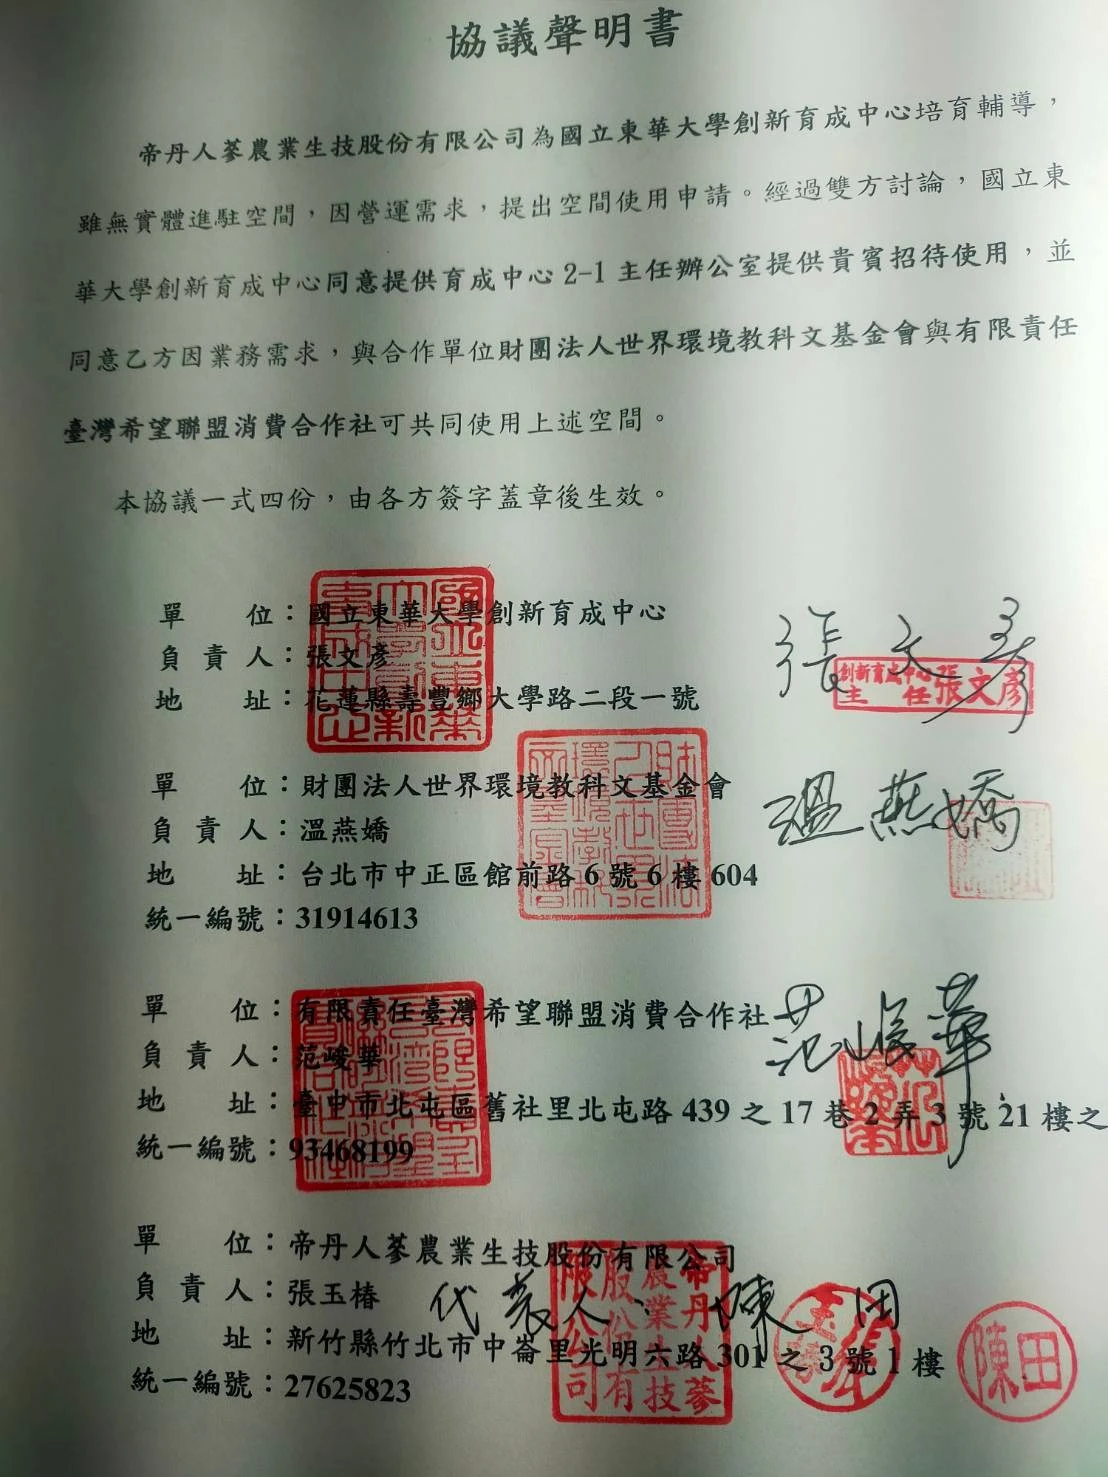 協議聲明書
帝丹人蔘農業生技股份有限公司為國立東華大學創新育成中心培育輔導，
雖無實體進駐空間，因營運需求，提出空間使用申請。經過雙方討論，國立東
華大學創新育成中心同意提供育成中心 2-1 主任辦公室提供貴賓招待使用，並
同意乙方因業務需求，與合作單位財團法人世界環境教科文基金會與有限責任
臺灣希望聯盟消費合作社可共同使用上述空間。
本協議一式四份，由各方簽字蓋章後生效。
單 位：國立東華大學創新育成中心
負 責 人：張文彥
地 址：花蓮縣壽豐鄉大學路二段一號
張文彥
創新育成中心
主 任 張文彥
單 位：財團法人世界環境教科文基金會
負 責 人：溫燕嬌
地 址：台北市中正區館前路 6 號 6 樓 604
統一編號：31914613
溫燕嬌
單 位：有限責任臺灣希望聯盟消費合作社
負 責 人：范峻華
地 址：臺中市北屯區舊社里北屯路 439 之 17 巷 2 弄 3 號 21 樓之
統一編號：93468199
范峻華
單 位：帝丹人蔘農業生技股份有限公司
負 責 人：張玉椿
代表人：陳田
地 址：新竹縣竹北市中崙里光明六路 301 之 3 號 1 樓
統一編號：27625823
帝丹人蔘
農業生技
股份有
限公司
陳田